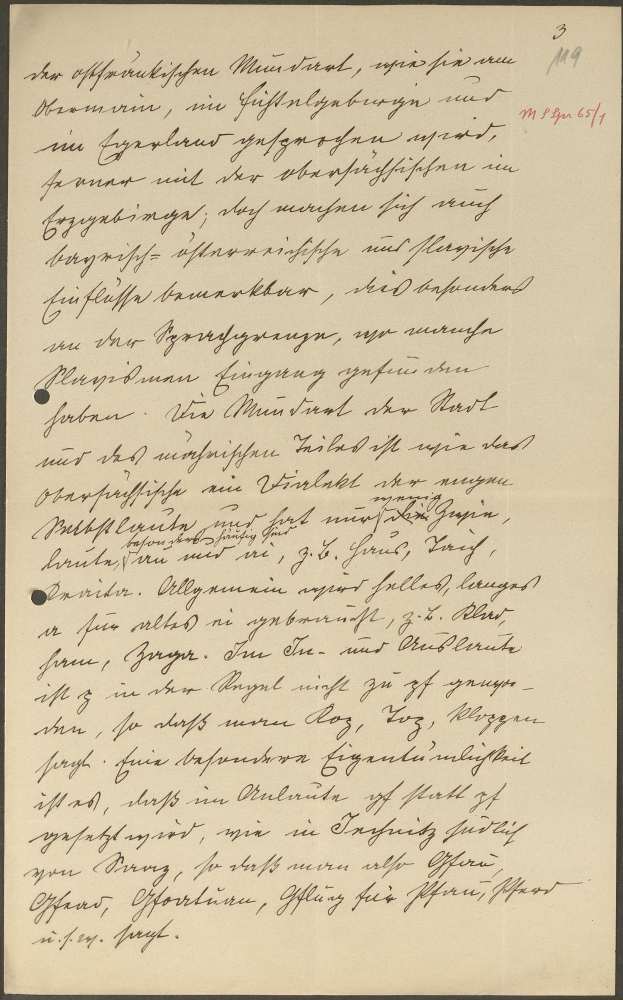 3
119
M S Spr 65/1
der ostfränkischen Mundart, wie sie am
Obermain, im Fichtelgebirge und
im Egerland gesprochen wird,
ferner mit der obersächsischen im
Erzgebirge; doch machen sich auch
bayrisch-österreichische und slavische
Einflüsse bemerkbar, dies besonders
an der Sprachgrenze, wo manche
Slavismen Eingang gefunden
haben. Die Mundart der Stadt
und des mährischen Teiles ist wie das
obersächsische ein Dialekt der engen
Selbstlaute und hat nur wenig Zwie-
laute, besonders häufig sind au und ai, z.B. Haus, Taich,
Kraita. Allgemein wird helles, langes
a für altes ei gebraucht, z.B. Klad,
ham, Zaga. Im In- und Auslaute
ist p in der Regel nicht zu pf gewor-
den, so daß man Kop, Top, kloppen
sagt. Eine besondere Eigentümlichkeit
ist es, daß im Anlaute gf statt pf
gesetzt wird, wie in Jechnitz südlich
von Saaz, so daß man also Gfau,
Gfead, Gfoatuan, Gflug für Pfau, Pferd
u.s.w. sagt.